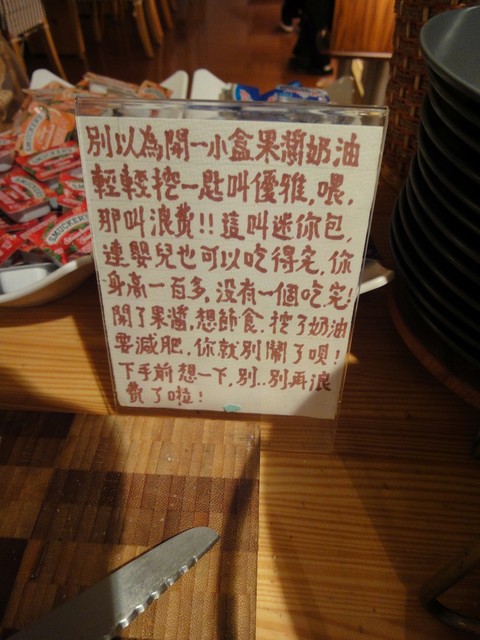 別以為開一小盒果醬奶油
輕輕挖一匙叫優雅,喂,
那叫浪費!!這叫迷你包,
連嬰兒也可以吃得完,你
身高一百多,沒有一個吃完!
開了果醬,想節食.挖了奶油
要減肥.你就別鬧了唄!
下手前想一下,別..別再浪
費了啦!
SMUCKER'S
SMUCKER'S
SMUCKER'S